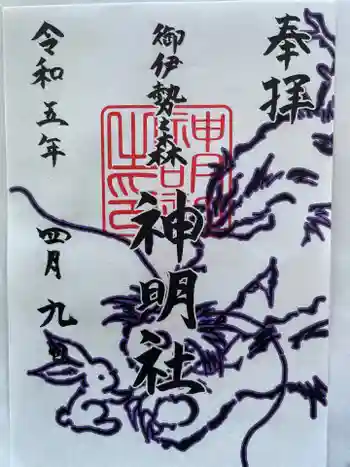 奉拝
御伊勢之森
神明社
令和五年
四月九日